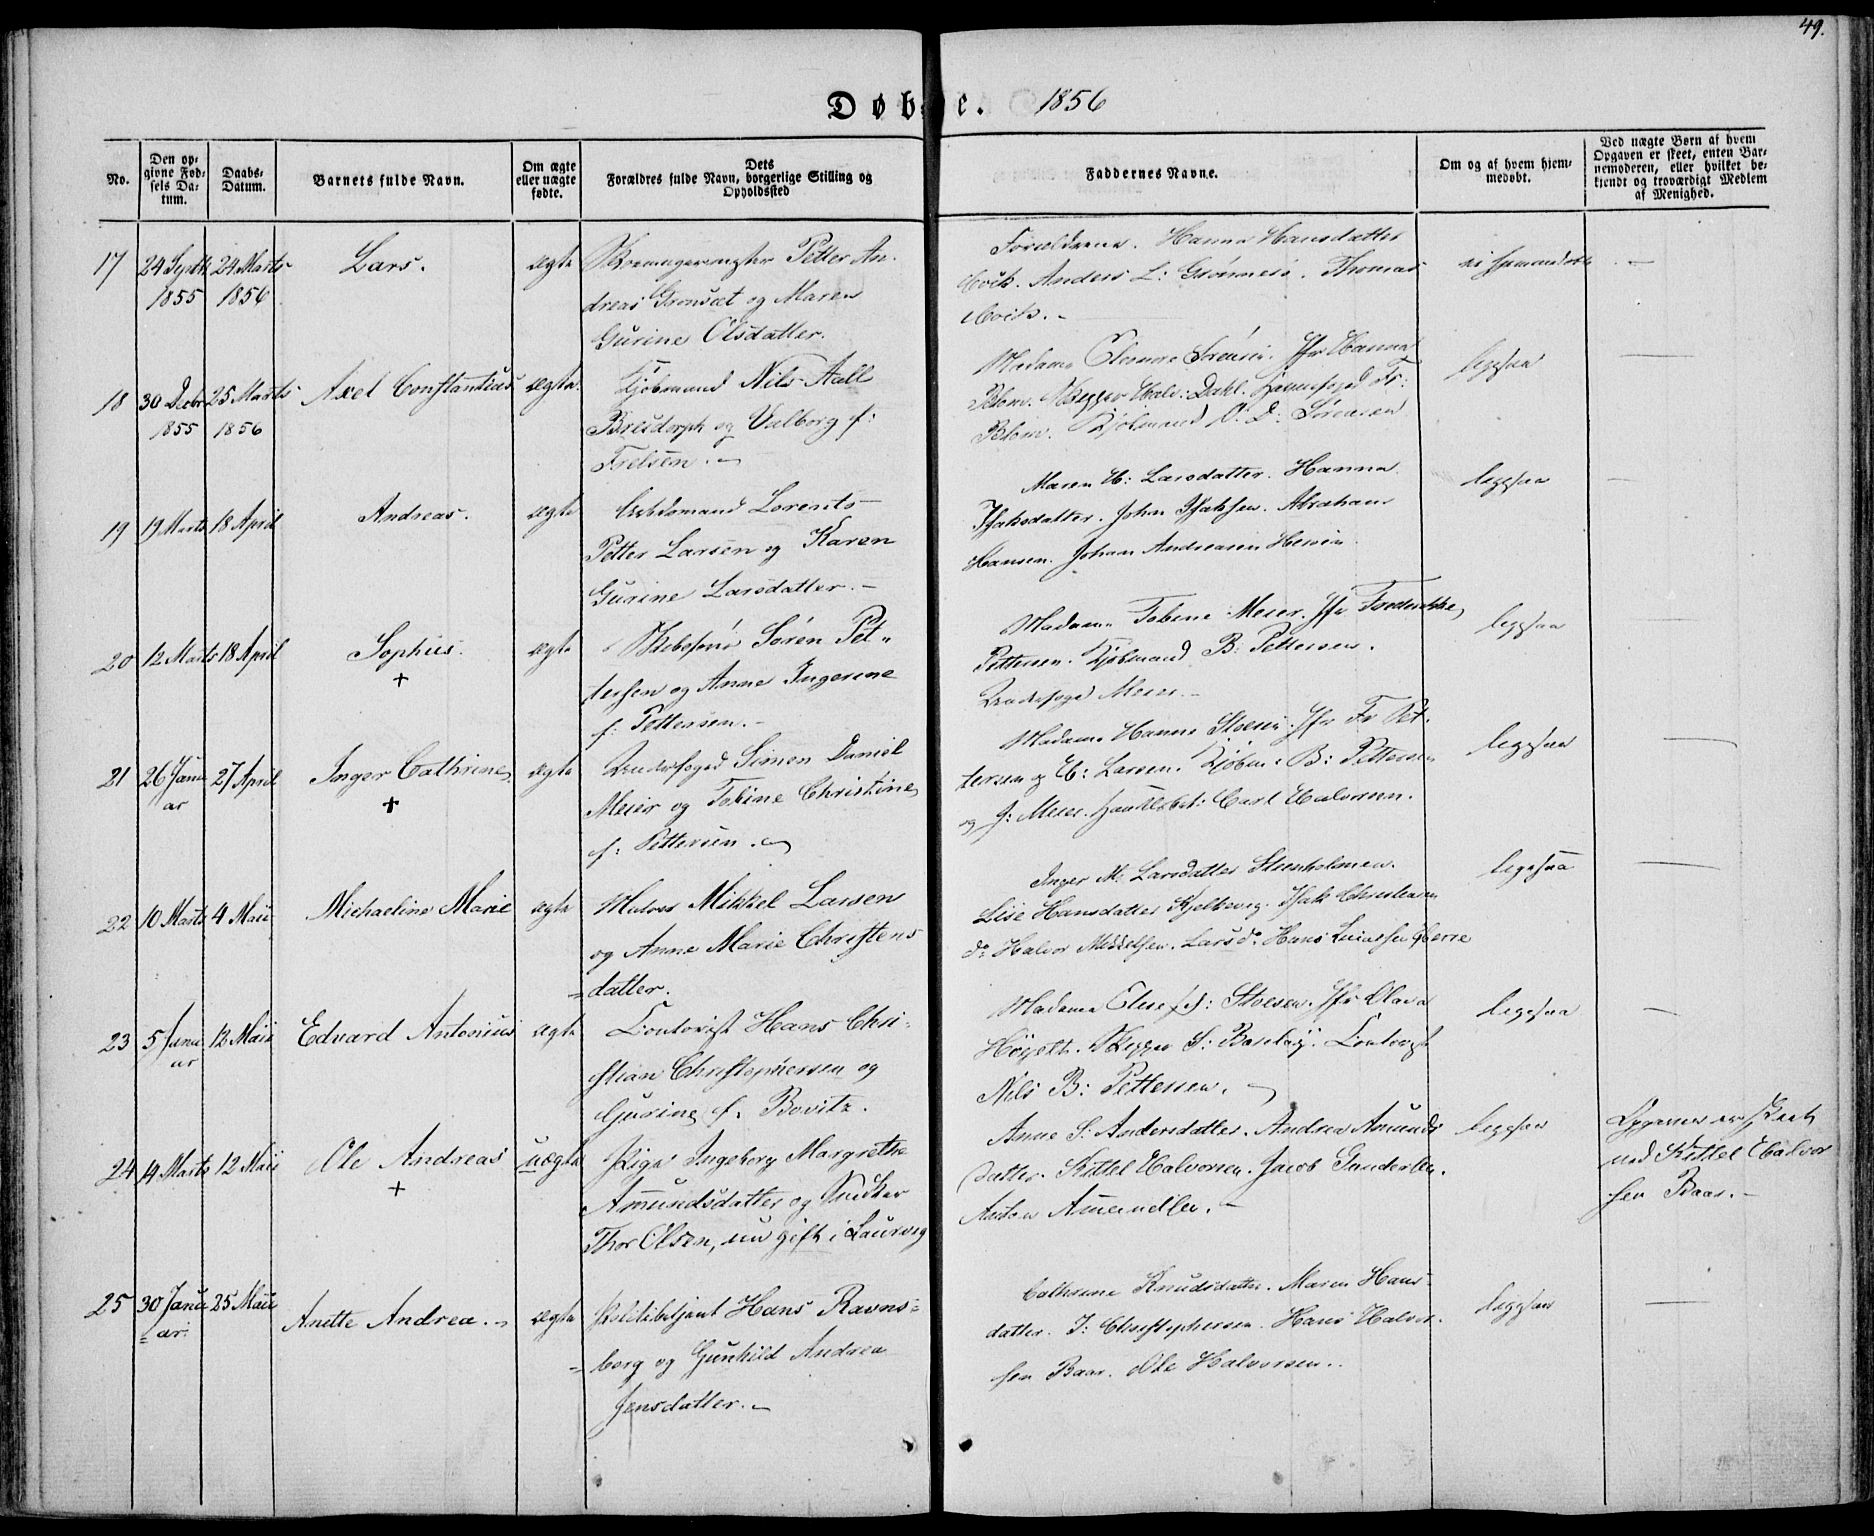 49.
Døbte. 1856
No.
Den op-
givne Fød-
sels Da-
tum.
Daabs-
Datum.
Barnets fulde Navn.
Om ægte
eller uægte
fødte.
Dets
Forældres fulde Navn, borgerlige Stilling og
Opholdssted
Faddernes Navne.
Om og af hvem hjem-
medøbt.
Ved uægte Børn af hvem
Opgaven er skeet, enten Bar-
nemoderen, eller hvilket be-
kjendt og troværdigt Medlem
af Menighed.
17 24 Septb 24 Marts Lars. ægte Petter An-
1855 1856 dreas Gronsæt og Maren
Gurine Olsdatter.
Forældrene. Hanna Hansdatter
Anders L: Thomas
18 30 Decbr 25 Marts Axel Constantius ægte Kjøbmand Nils Aall
1855 1856 Breidorph og Valborg f:
Frelsen.
Madame Eleonore Jfr Hanna
Blom. Skipper Halv: Dahl. Havnefoged Fr:
Blom. Kjøbmand O. D: Sørensen
ligesaa —
19 19 Marts 18 April Andreas. ægte Arbdsmand Lorents
Petter Larsen og Karen
Gurine Larsdatter. —
Maren H: Larsdatter. Hanna
Isaksdatter. Johan Isaksen. Abraham
Hansen. Johan Andreasen
ligesaa —
20 12 Marts 18 April Sophus. + ægte Søren Pet-
tersen og Anne Ingerine
f: Pettersen. —
Madame Tobine Meier. Jfr Frederikke
Pettersen. Kjøbmand B: Pettersen.
Underfoged Meier. —
ligesaa —
21 26 Janu 27 April Inger Cathrine + ægte Underfoged Simon Daniel
ar Meier og Tobine Christine
f: Pettersen.
Madame Hanne Jfr Fr Pet-
tersen og H: Larsen. Kjøbm: B: Pettersen
og J: Meier. Handelsbet: Carl Halvorsen.
ligesaa —
22 10 Marts 4 Maii Michaeline Marie ægte Matros Mikkel Larsen
og Anne Marie Christens
=datter.
Inger M: Larsdatter Steenholmen.
Lise Hansdatter Isak Christensen
do Halvor Mikkelsen. Lars do. Hans
ligesaa —
23 5 Janu 12 Maii Edvard Antonius ægte Contorist Hans Chri-
ar stian Christophersen og
Gurine f. Bovitz.
Madame Else Jfr Olava
Skipper S: Contorist
Nils B: Pettersen.
ligesaa —
24 14 Marts 12 Maii Ole Andreas + uægte Pige Ingeborg Margrethe
Amundsdatter og Snedker
Thor Olsen, nu gift i Laurvig
Anne S: Andersdatter. Andrea Amunds
datter. Kittel Halvorsen. Jacob Gundersen.
Anton Amundsen. —
ligesaa Opgaven er skeet
ved Kittel Halvor
sen Baar. —
25 30 Janu 25 Maii Anette Andrea. ægte Politibetjent Hans Ravns=
=ar. =borg og Gunhild Andrea
Jensdatter. —
Cathrine Knudsdatter. Maren Hans-
datter. J: Christophersen. Hans Halvor-
sen Baar. Ole Halvorsen.
ligesaa —